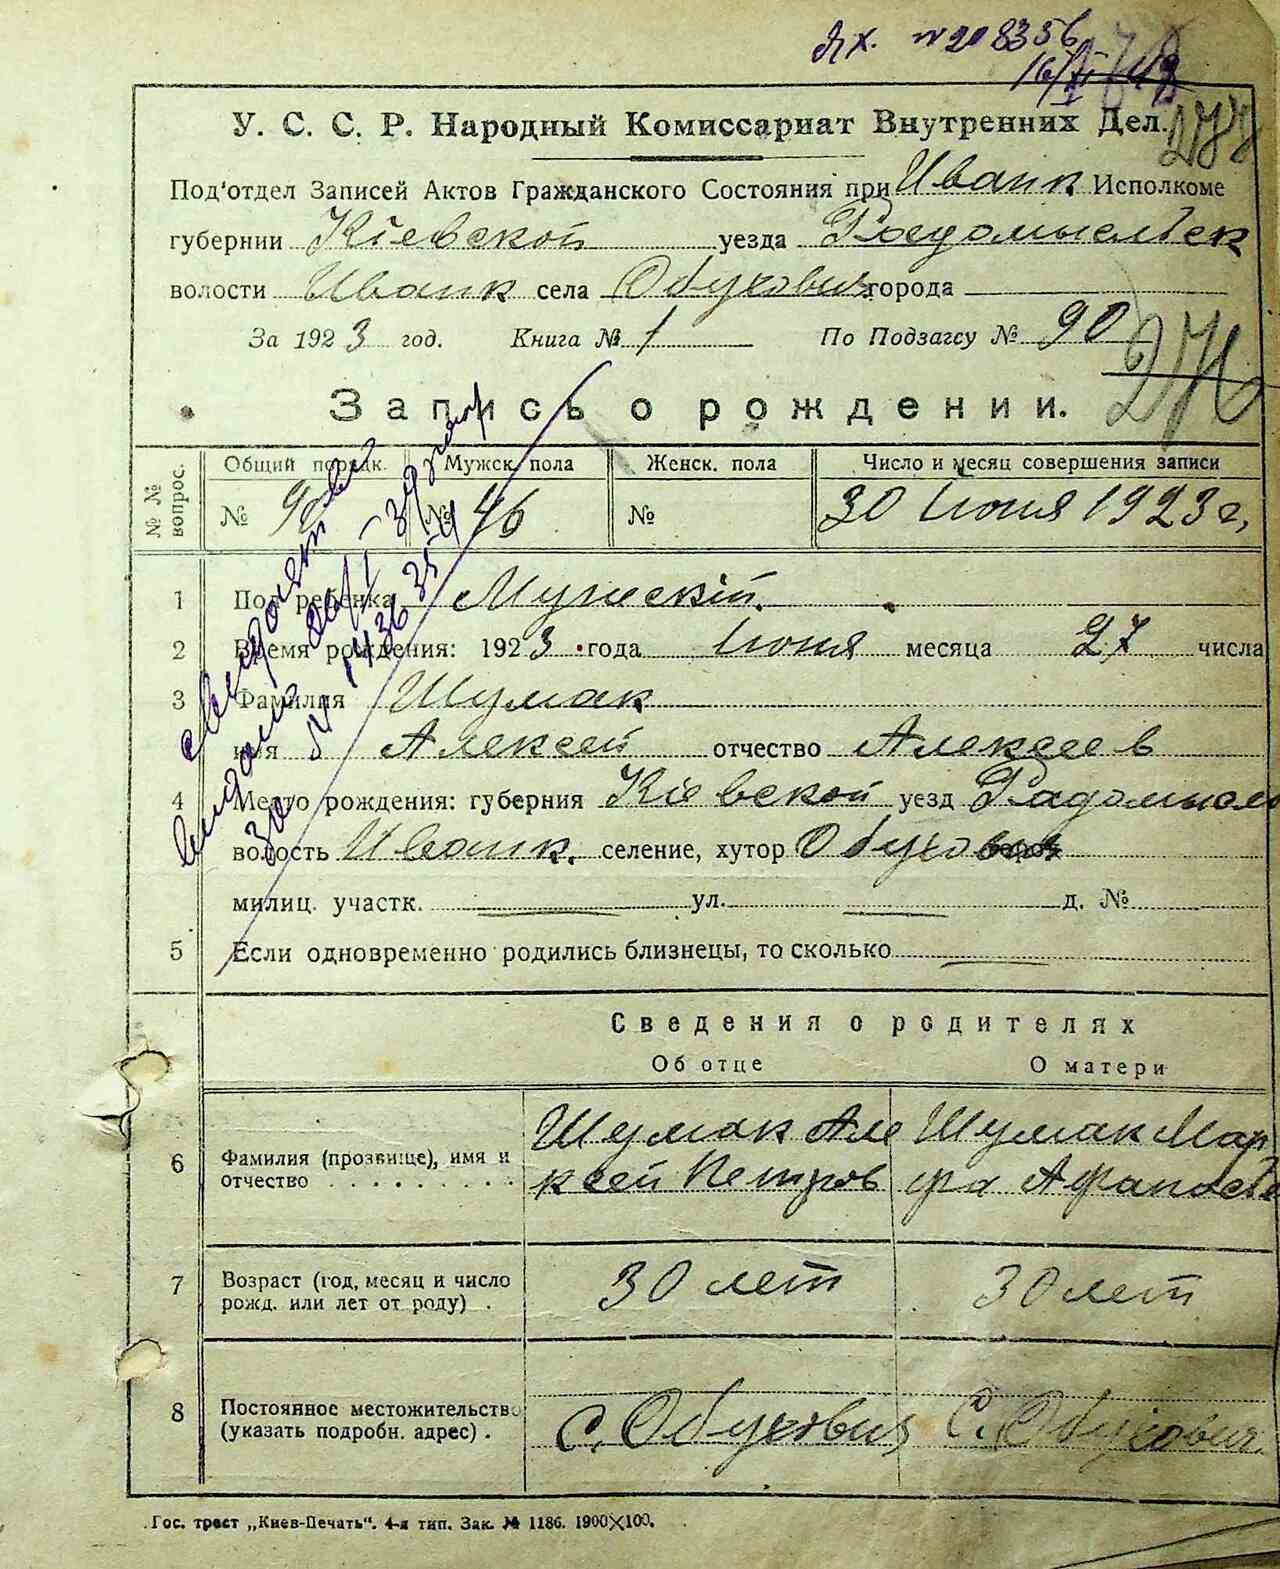 Вх. №208356
У. С. С. Р. Народный Комиссариат Внутренних Дел.
Под'отдел Записей Актов Гражданского Состояния при Иванк. Исполкоме
губернии Кіевской уезда Радомысльск
волости Иванк села Обухович города
За 1923 год. Книга № 1 По Подзагсу № 90
Запись о рождении.
№ № вопрос.
Общий порядк. Мужск. пола Женск. пола Число и месяц совершения записи
№ 90 № 46 № 30 Июня 1923 г.
1 Пол ребенка Мужескій.
2 Время рождения: 1923 года Июня месяца 27 числа
3 Фамилия Шумак
имя Алексей отчество Алексеев
4 Место рождения: губерния Кіевской уезд Радомысл
волость Иванк. селение, хутор Обухович
милиц. участк. ул. д. №
5 Если одновременно родились близнецы, то сколько
Сведения о родителях
Об отце О матери
6 Фамилия (прозвище), имя и отчество
Шумак Але
ксей Петров
Шумак Мар
фа Афанасьев
7 Возраст (год, месяц и число рожд. или лет от роду) . 30 лет 30 лет
8 Постоянное местожительство (указать подробн. адрес) . С. Обухович С. Обухович.
Гос. трест „Киев-Печать". 4-я тип. Зак. № 1186. 1900×100.